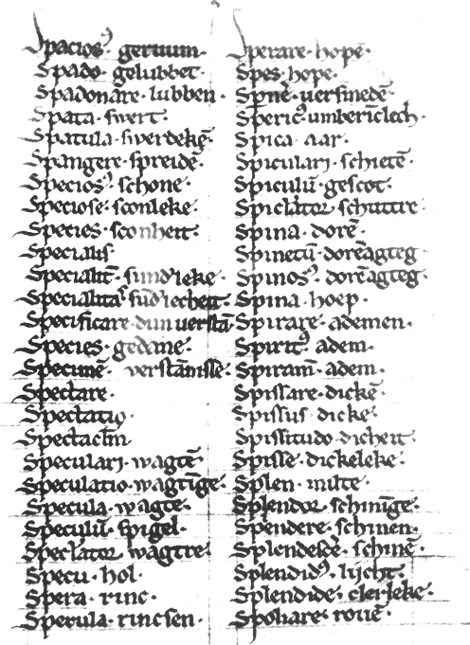 Spacios⁹ · geruum ·
Spado · gelubbet ·
Spadonare · lubben ·
Spata · swert ·
Spatula · swerdekē ·
Spangere · spreidē ·
Specios⁹ · schone ·
Speciose · sconleke ·
Species · sconheit ·
Specialis ·
Specialit̄ · sund'leke ·
Specialitas · sūd'lecheit ·
Specificare · dun uerstā ·
Species · gedane ·
verstānisse ·
Spectare ·
Spectatio ·
Spectaclm̄
Speculari · wagtē ·
Speculatio · wagtīge ·
Specula · wagte ·
Speculū · spigel ·
Spectator · wagtre ·
Specu · hol ·
Spera · rinc ·
Sperula · rincsen ·
Sperare · hopē ·
Spes · hope ·
uersmedē ·
Speric⁹ · umberīclech ·
Spica · aar ·
Spiculari · schietē ·
Spiculū · gescot ·
schuttre ·
Spina · dorē ·
Spinetū · dorēagteg ·
Spinos⁹ · dorēagteg ·
Spina · hoep ·
Spirare · ademen ·
Spirit⁹ · adem ·
Spiram̄ · adem ·
Spissare · dickē ·
Spissus · dicke ·
Spissitudo · dicheit ·
Spisse · dickeleke ·
Splen · milte ·
Splendor · schinīge ·
Spendere · schinen ·
Splendescē · schinē ·
Splendid⁹ · lijcht ·
Splendide · clerleke ·
Spoliare · rouē ·